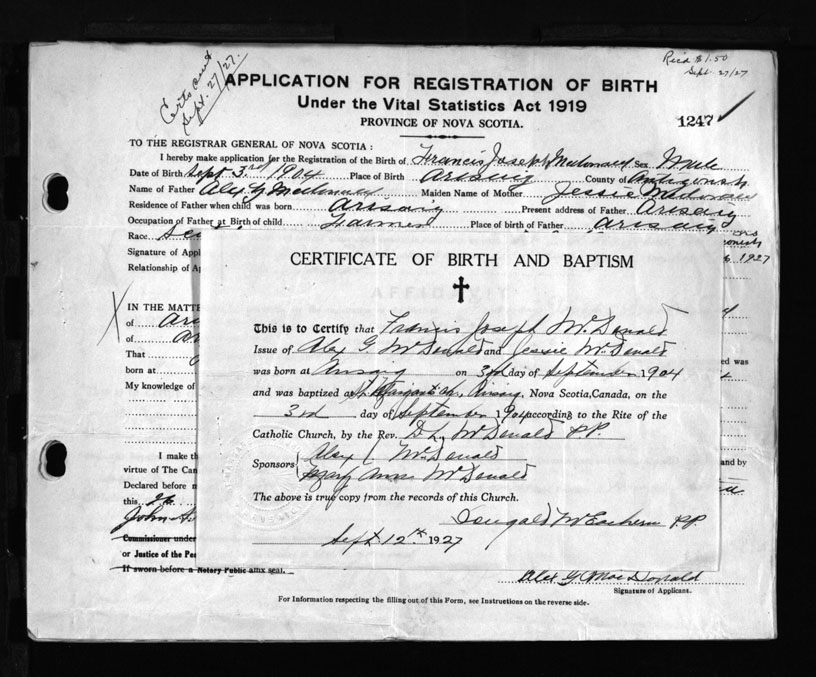 Certs sent
Sept. 27/27.
Rec'd $1.50
Sept. 27/27
APPLICATION FOR REGISTRATION OF BIRTH
Under the Vital Statistics Act 1919
PROVINCE OF NOVA SCOTIA.
1247
TO THE REGISTRAR GENERAL OF NOVA SCOTIA :
I hereby make application for the Registration of the Birth of Francis Joseph Macdonald Sex Male
Date of Birth Sept 3rd 1904 Place of Birth Arisaig County of Antigonish
Name of Father Alex G Macdonald Maiden Name of Mother Jessie
Residence of Father when child was born Arisaig Present address of Father Arisaig
Occupation of Father at Birth of child Farmer Place of birth of Father Arisaig
Race
Signature of Appl 1927
Relationship of Ap
CERTIFICATE OF BIRTH AND BAPTISM
This is to Certify that Francis Joseph McDonald
Issue of Alex G McDonald and Jessie McDonald
was born at Arisaig on 3rd day of September 1904
and was baptized at Arisaig, Nova Scotia, Canada, on the
3rd day of September 1904 according to the Rite of the
Catholic Church, by the Rev. D. L. McDonald P.P.
Sponsors Alex McDonald
Mary Ann McDonald
The above is true copy from the records of this Church.
Dougald McEachern P.P.
Sept 12th 1927
IN THE MATTE
of Ari
of
That
born at
My knowledge of
ed was
I make th
virtue of The Can
and by
Declared before m
this 26
John A.
Commissioner under
or Justice of the Pea
If sworn before a Notary Public affix seal.
Alex G. MacDonald
Signature of Applicant.
For Information respecting the filling out of this Form, see Instructions on the reverse side.